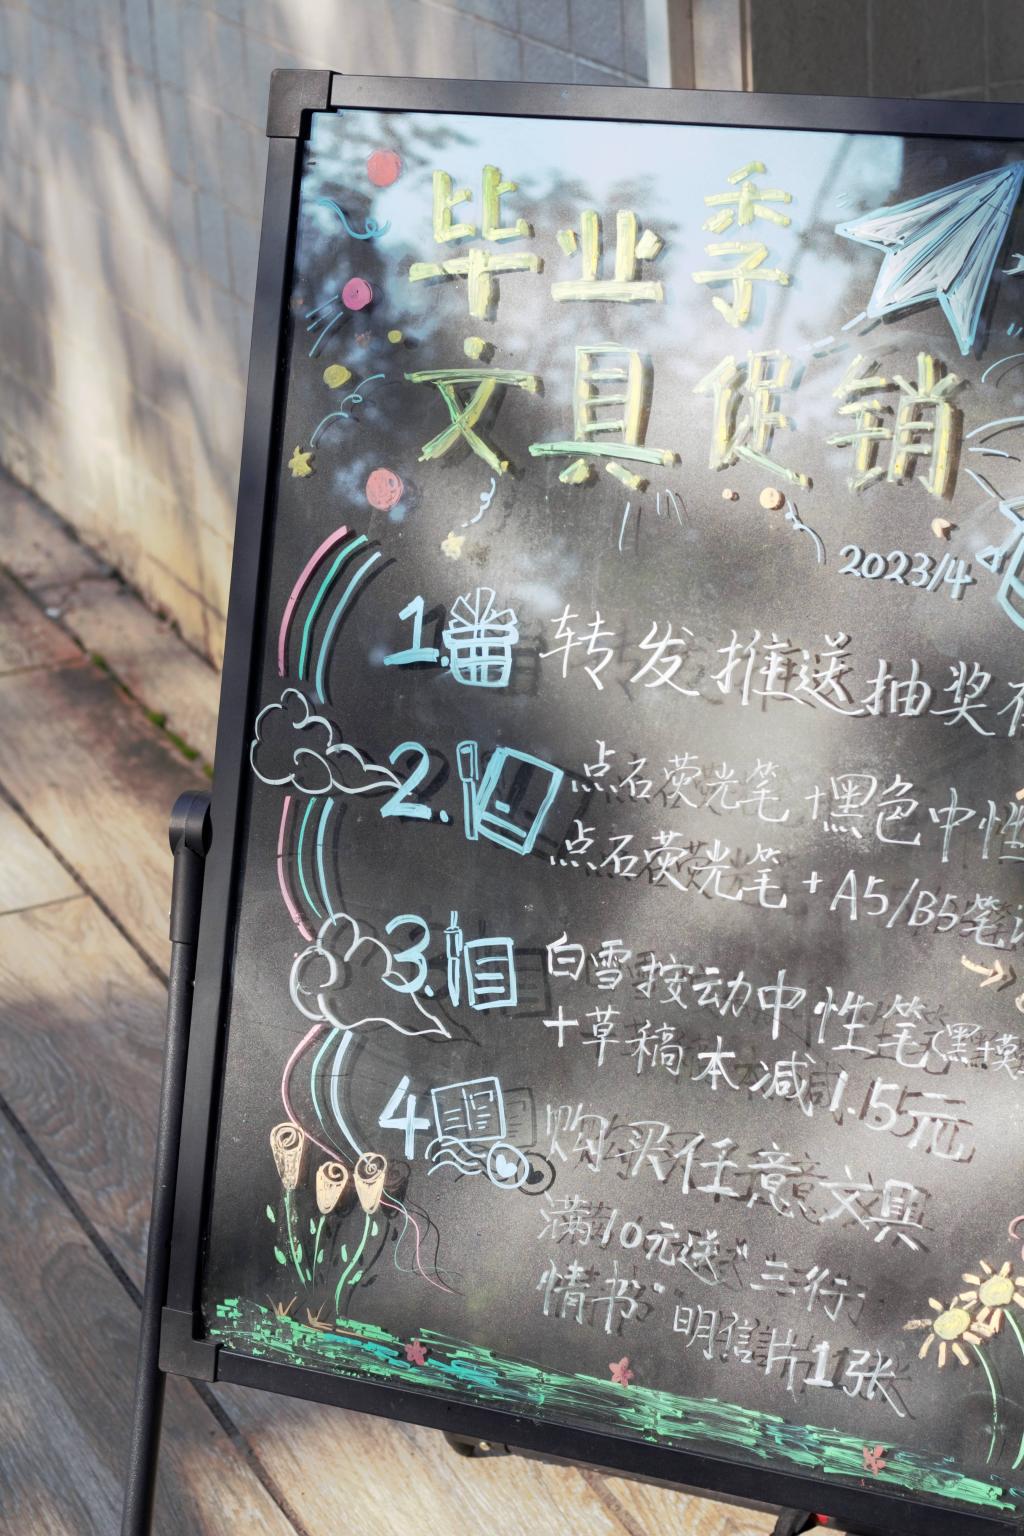 毕业季
文具促销
2023/4
1. 转发推送抽奖
2. 点石荧光笔+黑色中性
点石荧光笔+A5/B5笔
3. 白雪按动中性笔(黑+莫
+草稿本减1.5元
4 购买任意文具
满10元送“三行
情书”明信片1张